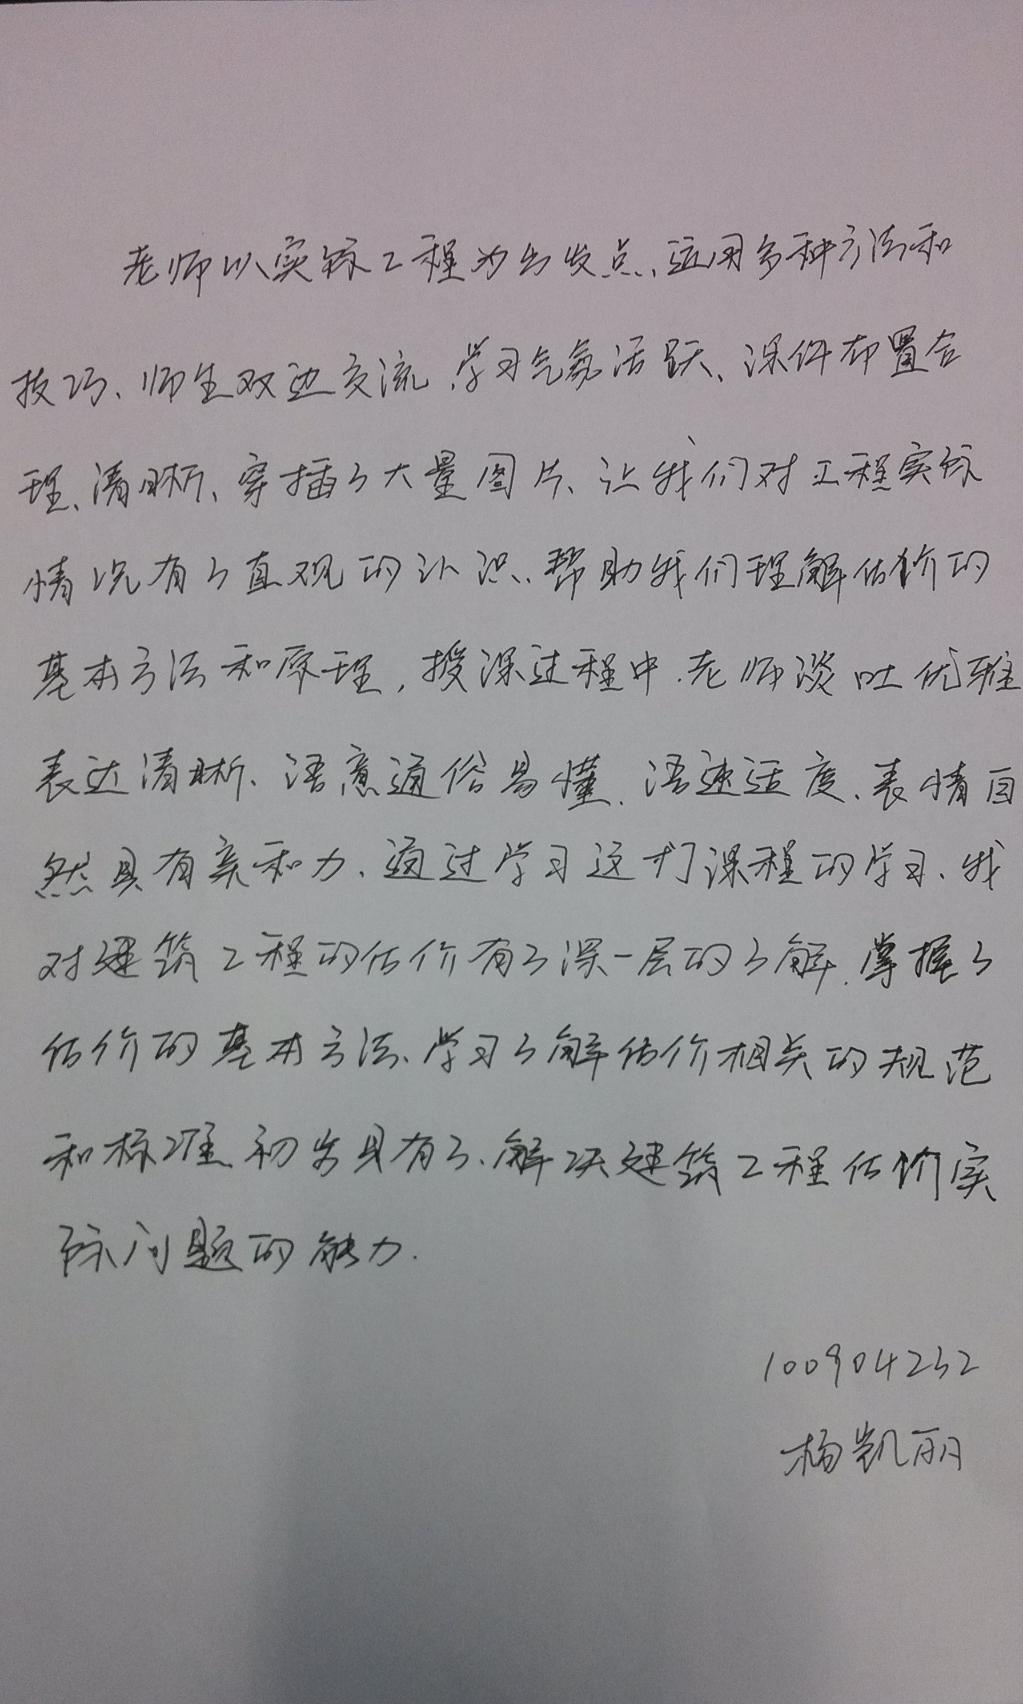 老师以实际工程为出发点、运用多种方法和
技巧、师生双边交流、学习气氛活跃、课件布置合
理、清晰、穿插了大量图片、让我们对工程实际
情况有了直观的认识、帮助我们理解估价的
基本方法和原理,授课过程中、老师谈吐优雅
表达清晰、语意通俗易懂、语速适度、表情自
然具有亲和力、通过学习这门课程的学习、我
对建筑工程的估价有了深一层的了解、掌握了
估价的基本方法、学习了解估价相关的规范
和标准、初步具有了、解决建筑工程估价实
际问题的能力.
100904232
杨凯丽